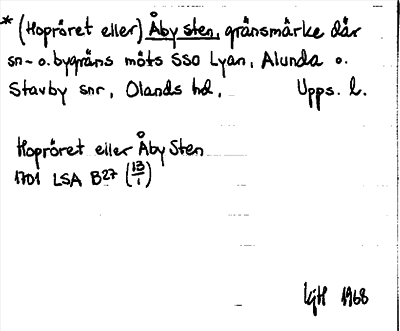 * (Hopröret eller) Åby sten, gränsmärke där
sn- o. bygräns möts SSO Lyan, Alunda o.
Stavby snr, Olands hd, Upps. l.
Hopröret eller Åby Sten
1701 LSA B27 (13/1)
1968